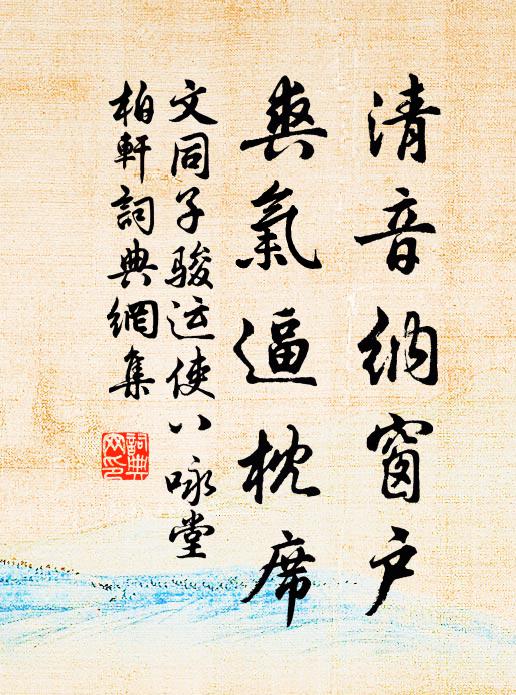 清音納窗户
爽氣逼枕席
文同子骏运使八咏堂
柏軒詞典網集
詞典网印